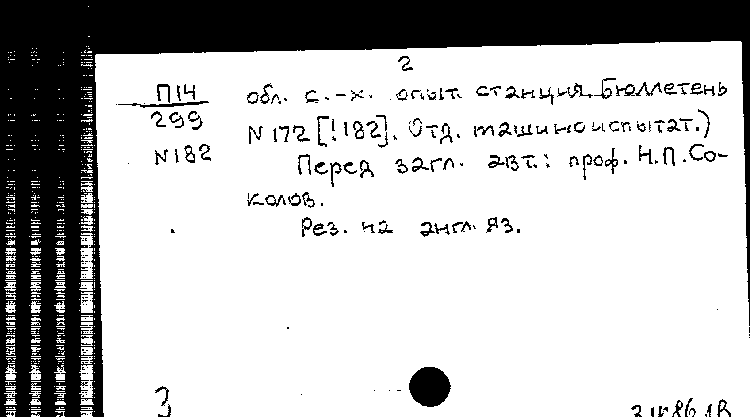 2
П14 обл. с.-х. опыт. станция. Бюллетень
299
N 172 [!182]. Отд. машиноиспытат.)
N182 Перед загл. авт.: проф. Н.П.Со-
колов.
Рез. на англ. яз.
3